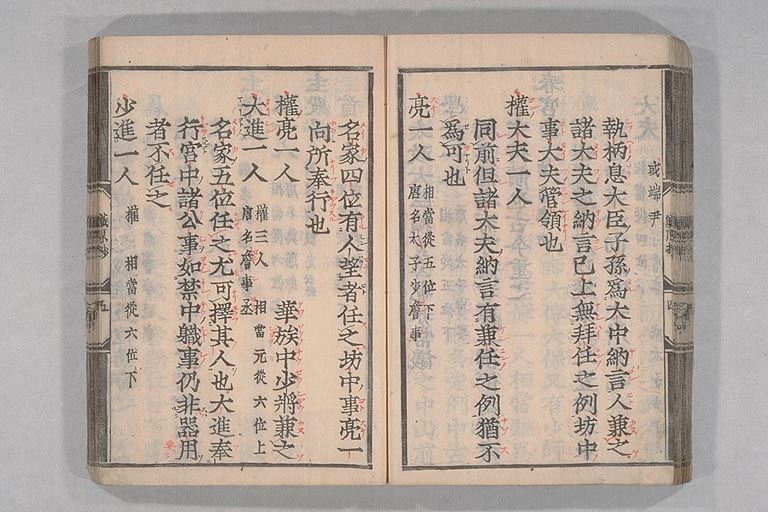 或端尹
執柄息大臣子孫爲大中納言人兼之
諸大夫之納言已上無拜任之例坊中
事大夫管領也
權大夫一人
同前但諸大夫納言有兼任之例猶不
爲可也
亮一人 相當從五位下 唐名太子少詹事
名家四位有人望者任之坊中事亮一
向所奉行也
權亮一人 華族中少將兼之
大進一人 權三人 相當元從六位上 唐名詹事丞
名家五位任之尤可擇其人也大進奉
行宮中諸公事如禁中職事仍非器用
者不任之
少進一人 權 相當從六位下
職原抄 五